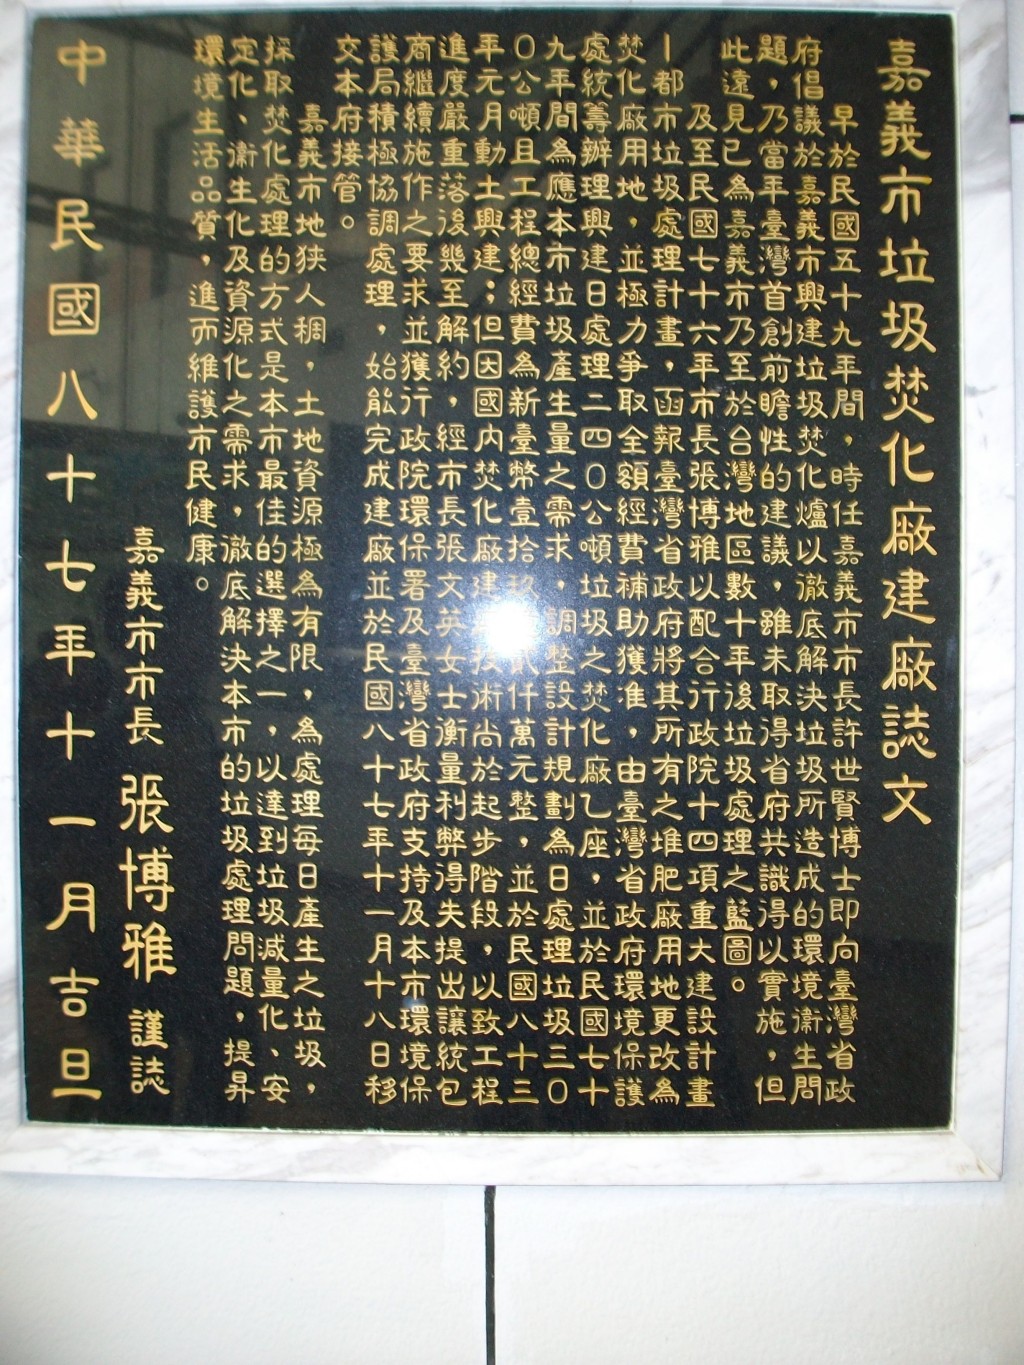 嘉義市垃圾焚化廠建廠誌文
早於民國五十九年間，時任嘉義市市長許世賢博士即向臺灣省政
府倡議於嘉義市興建垃圾焚化爐以徹底解決垃圾所造成的環境衛生問
題，乃當年臺灣首創前瞻性的建議，雖未取得省府共識得以實施，但
此遠見已為嘉義市乃至於台灣地區數十年後垃圾處理之藍圖。
及至民國七十六年市長張博雅以配合行政院十四項重大建設計畫
－都市垃圾處理計畫，函報臺灣省政府將其所有之堆肥廠用地更改為
焚化廠用地，並極力爭取全額經費補助獲准，由臺灣省政府環境保護
處統籌辦理興建日處理二四０公噸垃圾之焚化廠乙座，並於民國七十
九年間為應本市垃圾產生量之需求，調整設計規劃為日處理垃圾三０
０公噸且工程總經費為新臺幣壹拾玖億貳仟萬元整，並於民國八十三
年元月動土興建；但因國內焚化廠建技術尚於起步階段，以致工程
進度嚴重落後幾至解約，經市長張文英女士衡量利弊得失提出讓統包
商繼續施作之要求並獲行政院環保署及臺灣省政府支持及本市環境保
護局積極協調處理，始能完成建廠並於民國八十七年十一月十八日移
交本府接管。
嘉義市地狹人稠，土地資源極為有限，為處理每日產生之垃圾，
採取焚化處理的方式是本市最佳的選擇之一，以達到垃圾減量化、安
定化、衛生化及資源化之需求，徹底解決本市的垃圾處理問題，提昇
環境生活品質，進而維護市民健康。
嘉義市市長 張博雅 謹誌
中華民國八十七年十一月吉旦